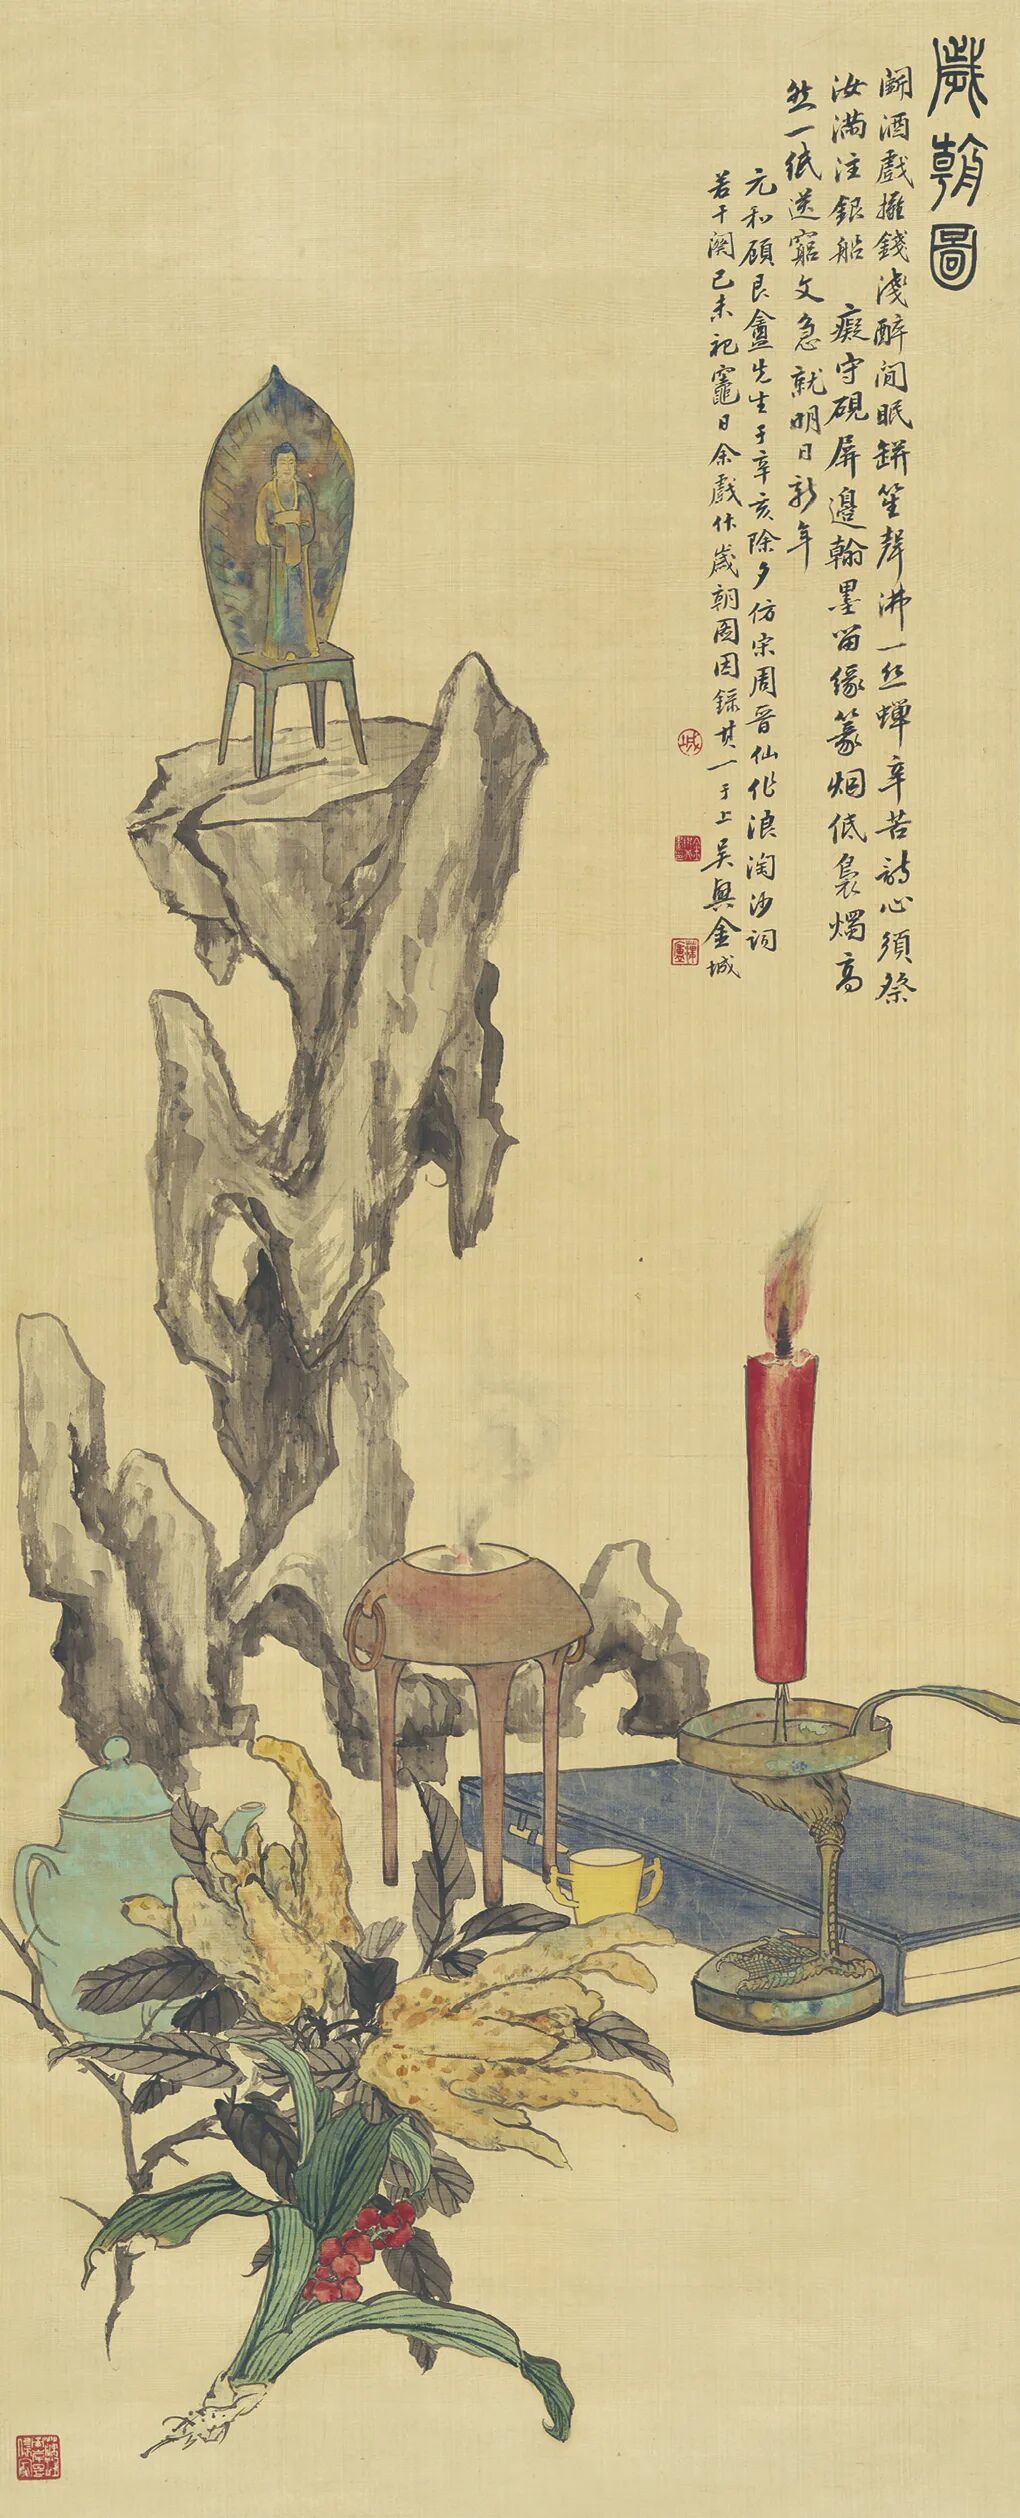 歲朝圖
鬭酒戲攤錢淺醉閒眠缾笙聲沸一絲蟬辛苦詩心須祭
汝滿注銀船 癡守硯屏邊翰墨留緣篆烟低裊燭高
然一紙送窮文急就明日新年
元和顧艮盦先生于辛亥除夕仿宋周晉仙作浪淘沙詞
若干闋己未祀竈日余戲作歲朝圖因錄其一于上吳興金城
城